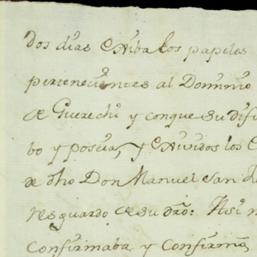 dos dias exiba los papeles
pertenecientes al Dominio
de Guerechi y conque su difu
bo y poseia, y exividos los
de dho Don Manuel San d
resguardo de su dro: Asi
confirmaba y confirmo,